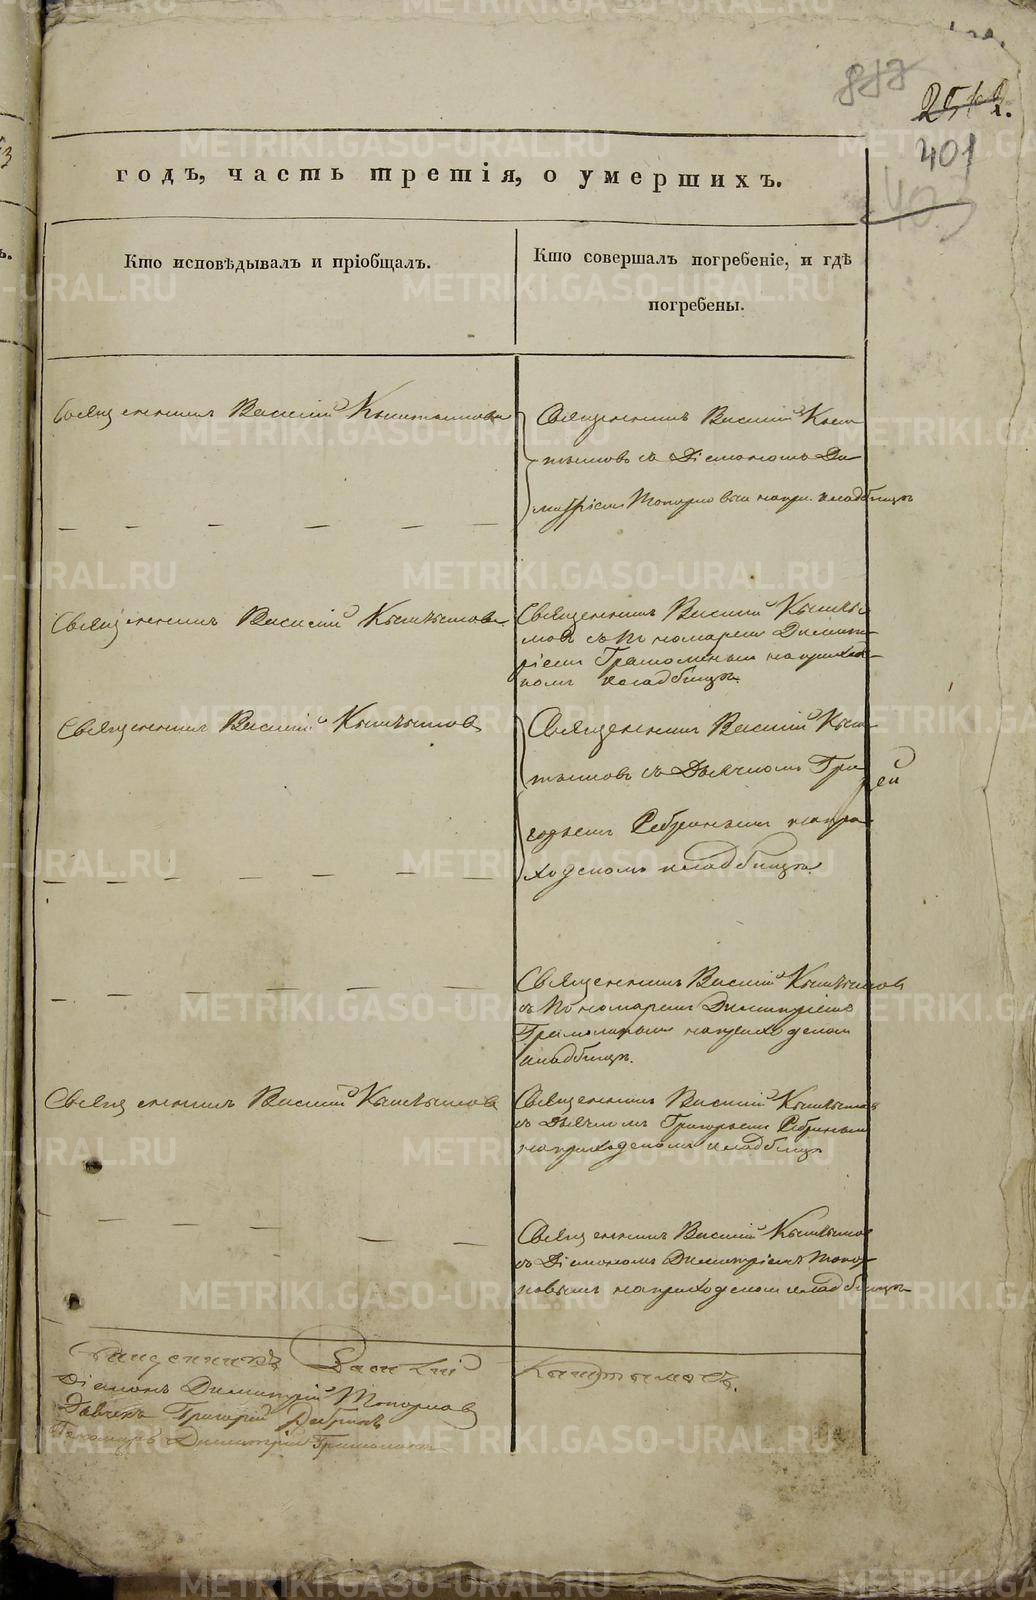 401
годъ, часть третія, о умершихъ.
Кто исповѣдывалъ и пріобщалъ.
Кто совершалъ погребеніе, и гдѣ
погребены.
Священникъ Василій Кыштымовъ
Священникъ Василій Кыш
тымовъ съ Діакономъ Ди
митріем Топорко
Священникъ Василій Кыштымовъ
Священникъ Василій Кышты
мовъ съ Пономаремъ Димит
ріемъ на приход
ском кладбищѣ
Священникъ Василій Кыштымовъ
Священникъ Василій Кыш
тымовъ съ Дьячкомъ Гри
горьем на при
ходском кладбищѣ
Священникъ Василій Кыштымовъ
съ Пономарем Димитріемъ
на приходском
кладбищѣ.
Священникъ Василій Кыштымовъ
Священникъ Василій Кыштымовъ
съ Дьячкомъ Григорьем
на приходском кладбищѣ
Священникъ Василій Кыштымовъ
съ Діакономъ Димитріемъ
на приходском кладбищѣ
Священникъ Василій Кыштымовъ.
Діаконъ Димитрій
Дьячекъ Григорій
Пономарь Димитрій
METRIKI.GASO-URAL.RU